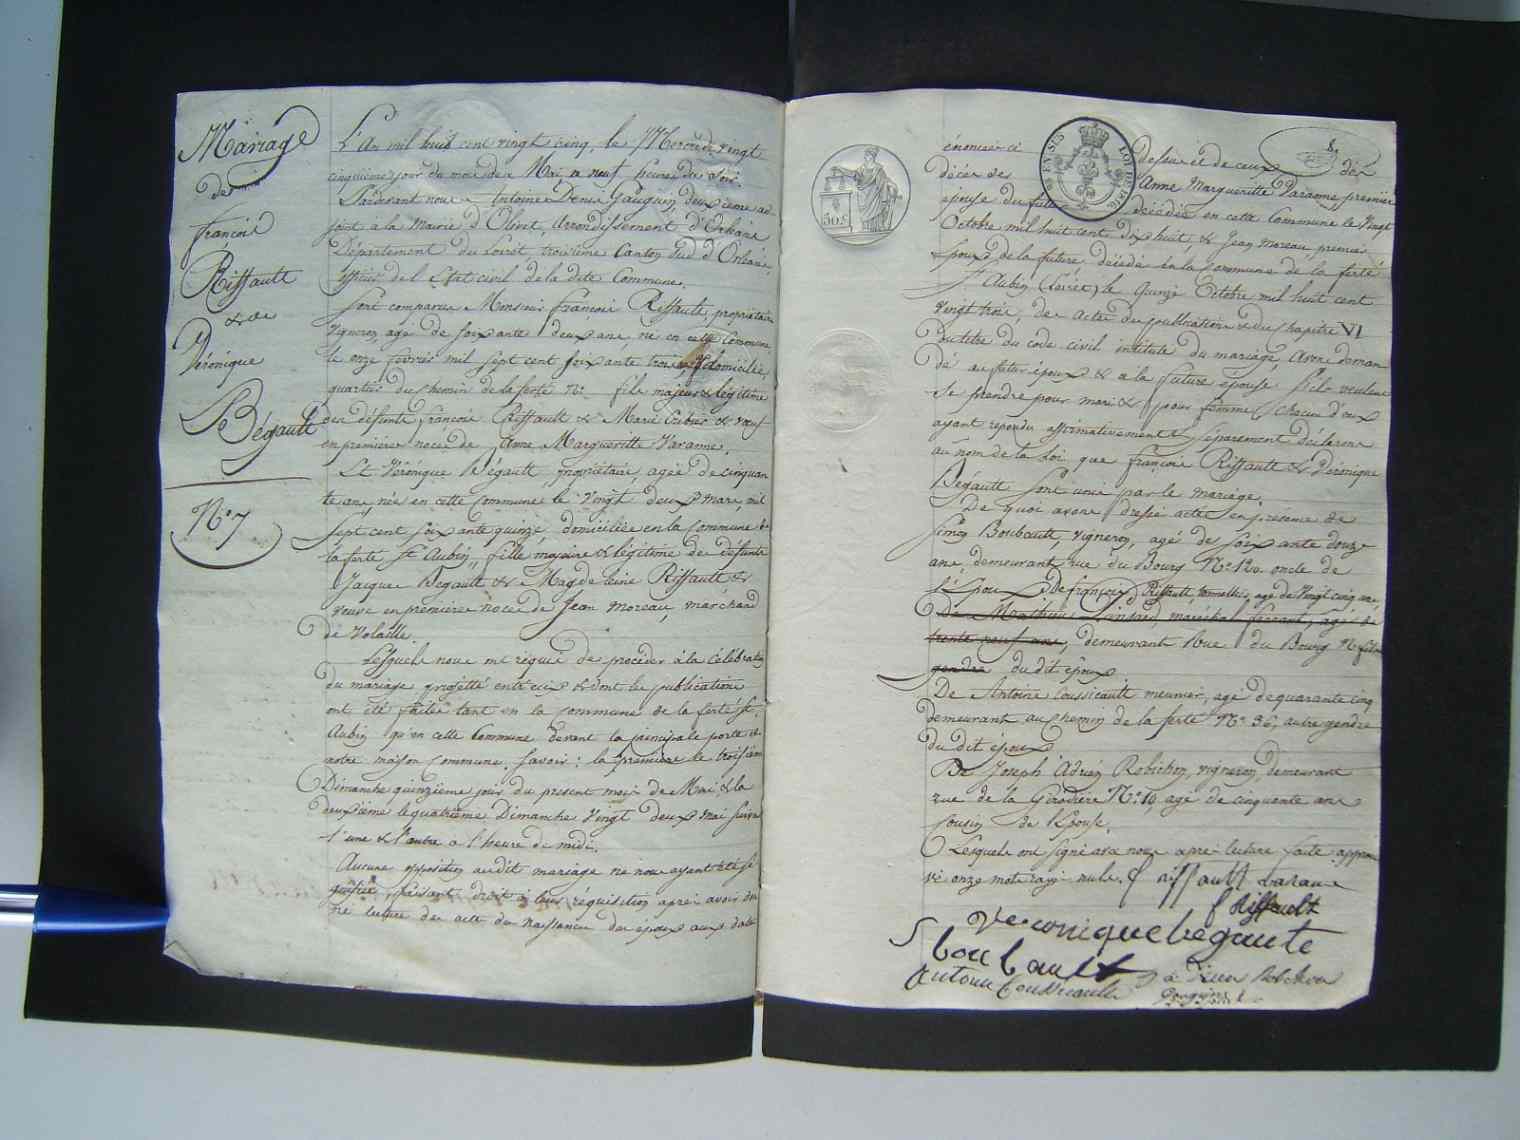 Mariage
de
françois
Riffault
& de
Véronique
Bégault
N° 7
L'An mil huit cent vingt cinq, le Mercredi vingt
cinquième jour du mois de Mai, a neuf heures du soir.
Pardevant nous Antoine Denis Gauguin, deuxieme ad
joint à la Mairie d'Olivet, Arrondissement d'Orléans
Département du Loiret troisième Canton Sud d'Orléans,
officier de l'Etat civil de la dite Commune.
Sont comparus Monsieur françois Riffault, propriétaire
vigneron, agé de soixante deux ans, né en cette Commune
le onze fevrier mil sept cent soixante trois & y domicilié,
quartier du chemin de la ferté N° fils majeur & légitime
des défunts françois Riffault & Marie Cribier & veuf
en premières noces de Anne Margueritte Varanne.
Et Véronique Bégault, propriétaire, agée de cinquan
te ans, née en cette commune le vingt deux Mars, mil
sept cent soixante quinze, domiciliée en la Commune de
la ferté St Aubin, fille majeure & légitime de défunts
Jacques Bégault & Magdeleine Riffault &
veuve en premières noces de Jean Moreau, marchand
de Volaille.
Lesquels nous ont requis de procéder à la célébration
du mariage projetté entr'eux & dont les publications
ont été faites tant en la commune de la ferté St
Aubin qu'en cette Commune devant la principale porte de
notre maison Commune. Savoir: la première le troisième
Dimanche quinzième jour du present mois de Mai, & la
deuxième le quatrième Dimanche vingt deux Mai suivant
l'une & l'autre a l'heure de midi.
Aucune opposition au dit mariage ne nous ayant été si
gnifiée, faisant droit à leur réquisition, après avoir don
né lecture des actes de Naissance des époux aux dates
énoncées ci dessus et de ceux des
décès de Anne Margueritte Varanne, première
épouse du futur décédée en cette Commune le Vingt
Octobre mil huit cent dix huit, & Jean Moreau, premier
époux de la future décédé en la Commune de la ferté
St Aubin (Loiret) le quinze Octobre mil huit cent
vingt trois, des actes de publication & du chapitre VI
du titre du code civil intitulé du mariage, avons deman
dé au futur époux & a la future épouse s'ils veulent
se prendre pour mari & pour femme, chacun d'eux
ayant répondu affirmativement & séparement déclarons
au nom de la Loi que françois Riffault & Véronique
Bégault sont unis par le mariage.
De quoi avons dressé acte en présence de
Simon Boubault, vigneron, agé de soixante douze
ans, demeurant rue du Bourg N° 120. oncle de
l'époux. De françois Riffault, agé de Vingt cinq ans,
maréchal ferrant, agé de
trente neuf ans, demeurant Rue du Bourg N° fils
gendre du dit époux
De Antoine Coussicault meunier, agé de quarante cinq
demeurant au chemin de la ferté N° 36, autre gendre
du dit époux
De Joseph Adrien Robichon, vigneron, demeurant
rue de la Gérodière N° 19, agé de cinquante ans
Cousin de l'épouse.
Lesquels ont signé avec nous après lecture faite approu
vé onze mots rayés nuls. f riffault varane
f Riffault
Veronique begaute
S boubault
Antoine Coussicault
Robichon
Gauguin
50 C
EN SUS
LOI DE 1816